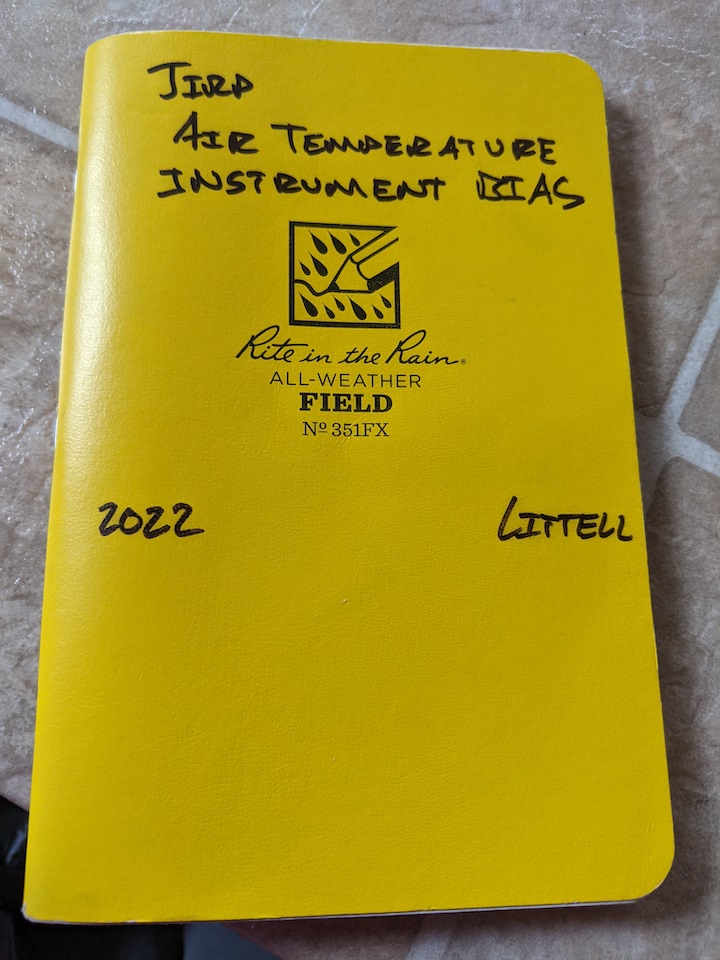 JIRP
AIR TEMPERATURE
INSTRUMENT BIAS
Rite in the Rain®
ALL-WEATHER
FIELD
Nº 351FX
2022 LITTELL